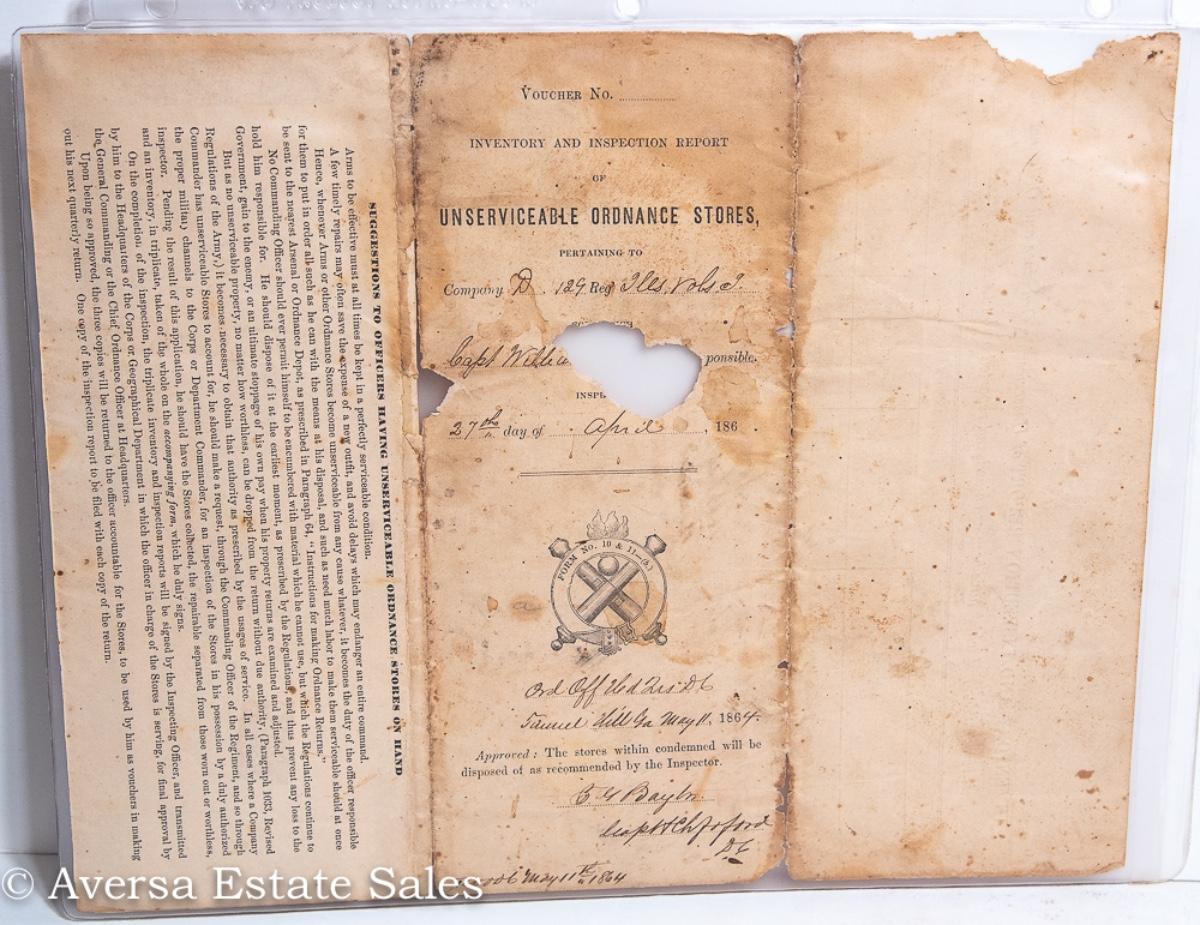 SUGGESTIONS TO OFFICERS HAVING UNSERVICEABLE ORDNANCE STORES ON HAND
Arms to be effective must at all times be kept in a perfectly serviceable condition.
A few timely repairs may often save the expense of a new outfit, and avoid delays which may endanger an entire command.
Hence, whenever Arms or other Ordnance Stores become unserviceable from any cause whatever, it becomes the duty of the officer responsible
for them to put in order all such as he can with the means at his disposal, and such as need much labor to make them serviceable should at once
be sent to the nearest Arsenal or Ordnance Depot, as prescribed in Paragraph 64, "Instructions for making Ordnance Returns."
No Commanding Officer should ever permit himself to be encumbered with material which he cannot use, but which the Regulations continue to
hold him responsible for. He should dispose of it at the earliest moment, as prescribed by the Regulations, and thus prevent any loss to the
Government, gain to the enemy, or an ultimate stoppage of his own pay when his property returns are examined and adjusted.
But as no unserviceable property, no matter how worthless, can be dropped from the return without due authority, (Paragraph 1033, Revised
Regulations of the Army,) it becomes necessary to obtain that authority as prescribed by the usages of service. In all cases where a Company
Commander has unserviceable Stores to account for, he should make a request, through the Commanding Officer of the Regiment, and so through
the proper military channels to the Corps or Department Commander, for an inspection of the Stores in his possession by a duly authorized
inspector. Pending the result of this application, he should have the Stores collected, the repairable separated from those worn out or worthless,
and an inventory, in triplicate, taken of the whole on the accompanying form, which he duly signs.
On the completion of the inspection, the triplicate inventory and inspection reports will be signed by the Inspecting Officer, and transmitted
by him to the Headquarters of the Corps or Geographical Department in which the officer in charge of the Stores is serving, for final approval by
the General Commanding or the Chief Ordnance Officer at Headquarters.
Upon being so approved, the three copies will be returned to the officer accountable for the Stores, to be used by him as vouchers in making
out his next quarterly return. One copy of the inspection report to be filed with each copy of the return.
VOUCHER No.
INVENTORY AND INSPECTION REPORT
OF
UNSERVICEABLE ORDNANCE STORES,
PERTAINING TO
Company D. 129 Reg Ills. Vols I.
Capt ponsible.
INSP
27th day of April, 186 .
FORM No. 10 & 11—(b.)
Ord Off
Tunnel Hill Ga May 11, 1864.
Approved: The stores within condemned will be
disposed of as recommended by the Inspector.
Capt
May 11th 1864
© Aversa Estate Sales